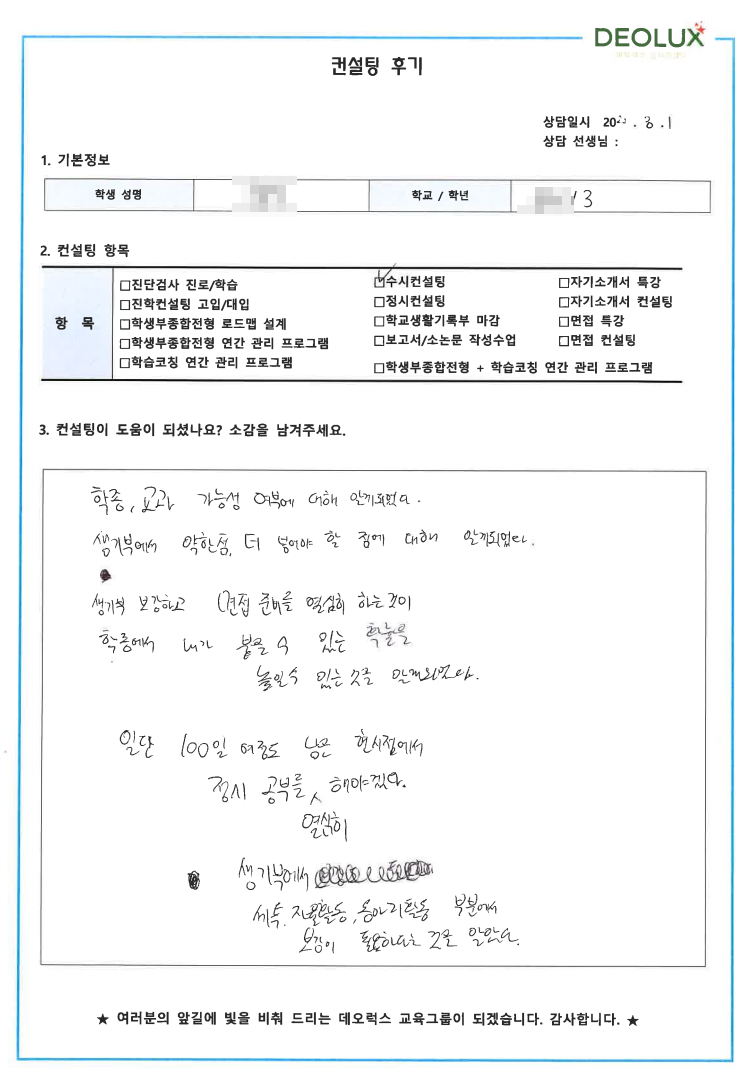 DEOLUX
컨설팅 후기
상담일시 20 . 8 . 1
상담 선생님 :
1. 기본정보
학생 성명 학교 / 학년 / 3
2. 컨설팅 항목
항 목
□진단검사 진로/학습 ☑수시컨설팅 □자기소개서 특강
□진학컨설팅 고입/대입 □정시컨설팅 □자기소개서 컨설팅
□학생부종합전형 로드맵 설계 □학교생활기록부 마감 □면접 특강
□학생부종합전형 연간 관리 프로그램 □보고서/소논문 작성수업 □면접 컨설팅
□학습코칭 연간 관리 프로그램 □학생부종합전형 + 학습코칭 연간 관리 프로그램
3. 컨설팅이 도움이 되셨나요? 소감을 남겨주세요.
학종, 교과 가능성 여부에 대해 알게되었다.
생기부에서 약한점, 더 넣어야 할 점에 대해 알게되었다.
생기부 보강하고 면접 준비를 열심히 하는것이
학종에서 내가 붙을 수 있는 확률을
높일수 있는 것을 알게되었다.
일단 100일 여정도 남은 현시점에서
정시 공부를 해야겠다.
열심히
생기부에서
세특, 자율활동, 동아리활동 부분에서
보강이 필요하다는 것을 알았다.
★ 여러분의 앞길에 빛을 비춰 드리는 데오럭스 교육그룹이 되겠습니다. 감사합니다. ★